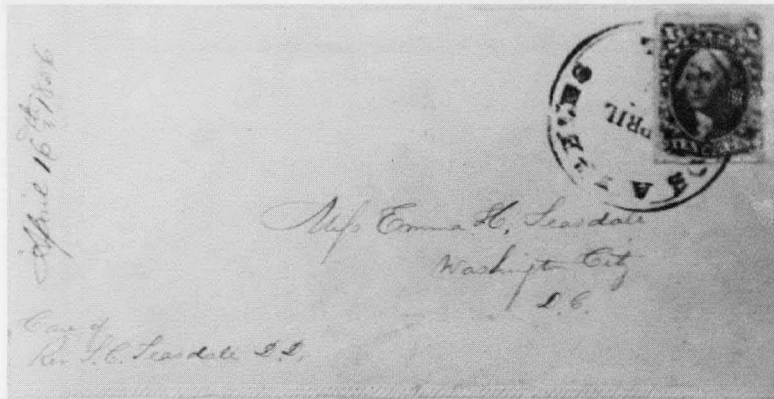 April 16th, 1866
APRIL
Miss Emma H. Teasdale
Washington City
D.C.
Care of
Rev T. C. Teasdale D.D.